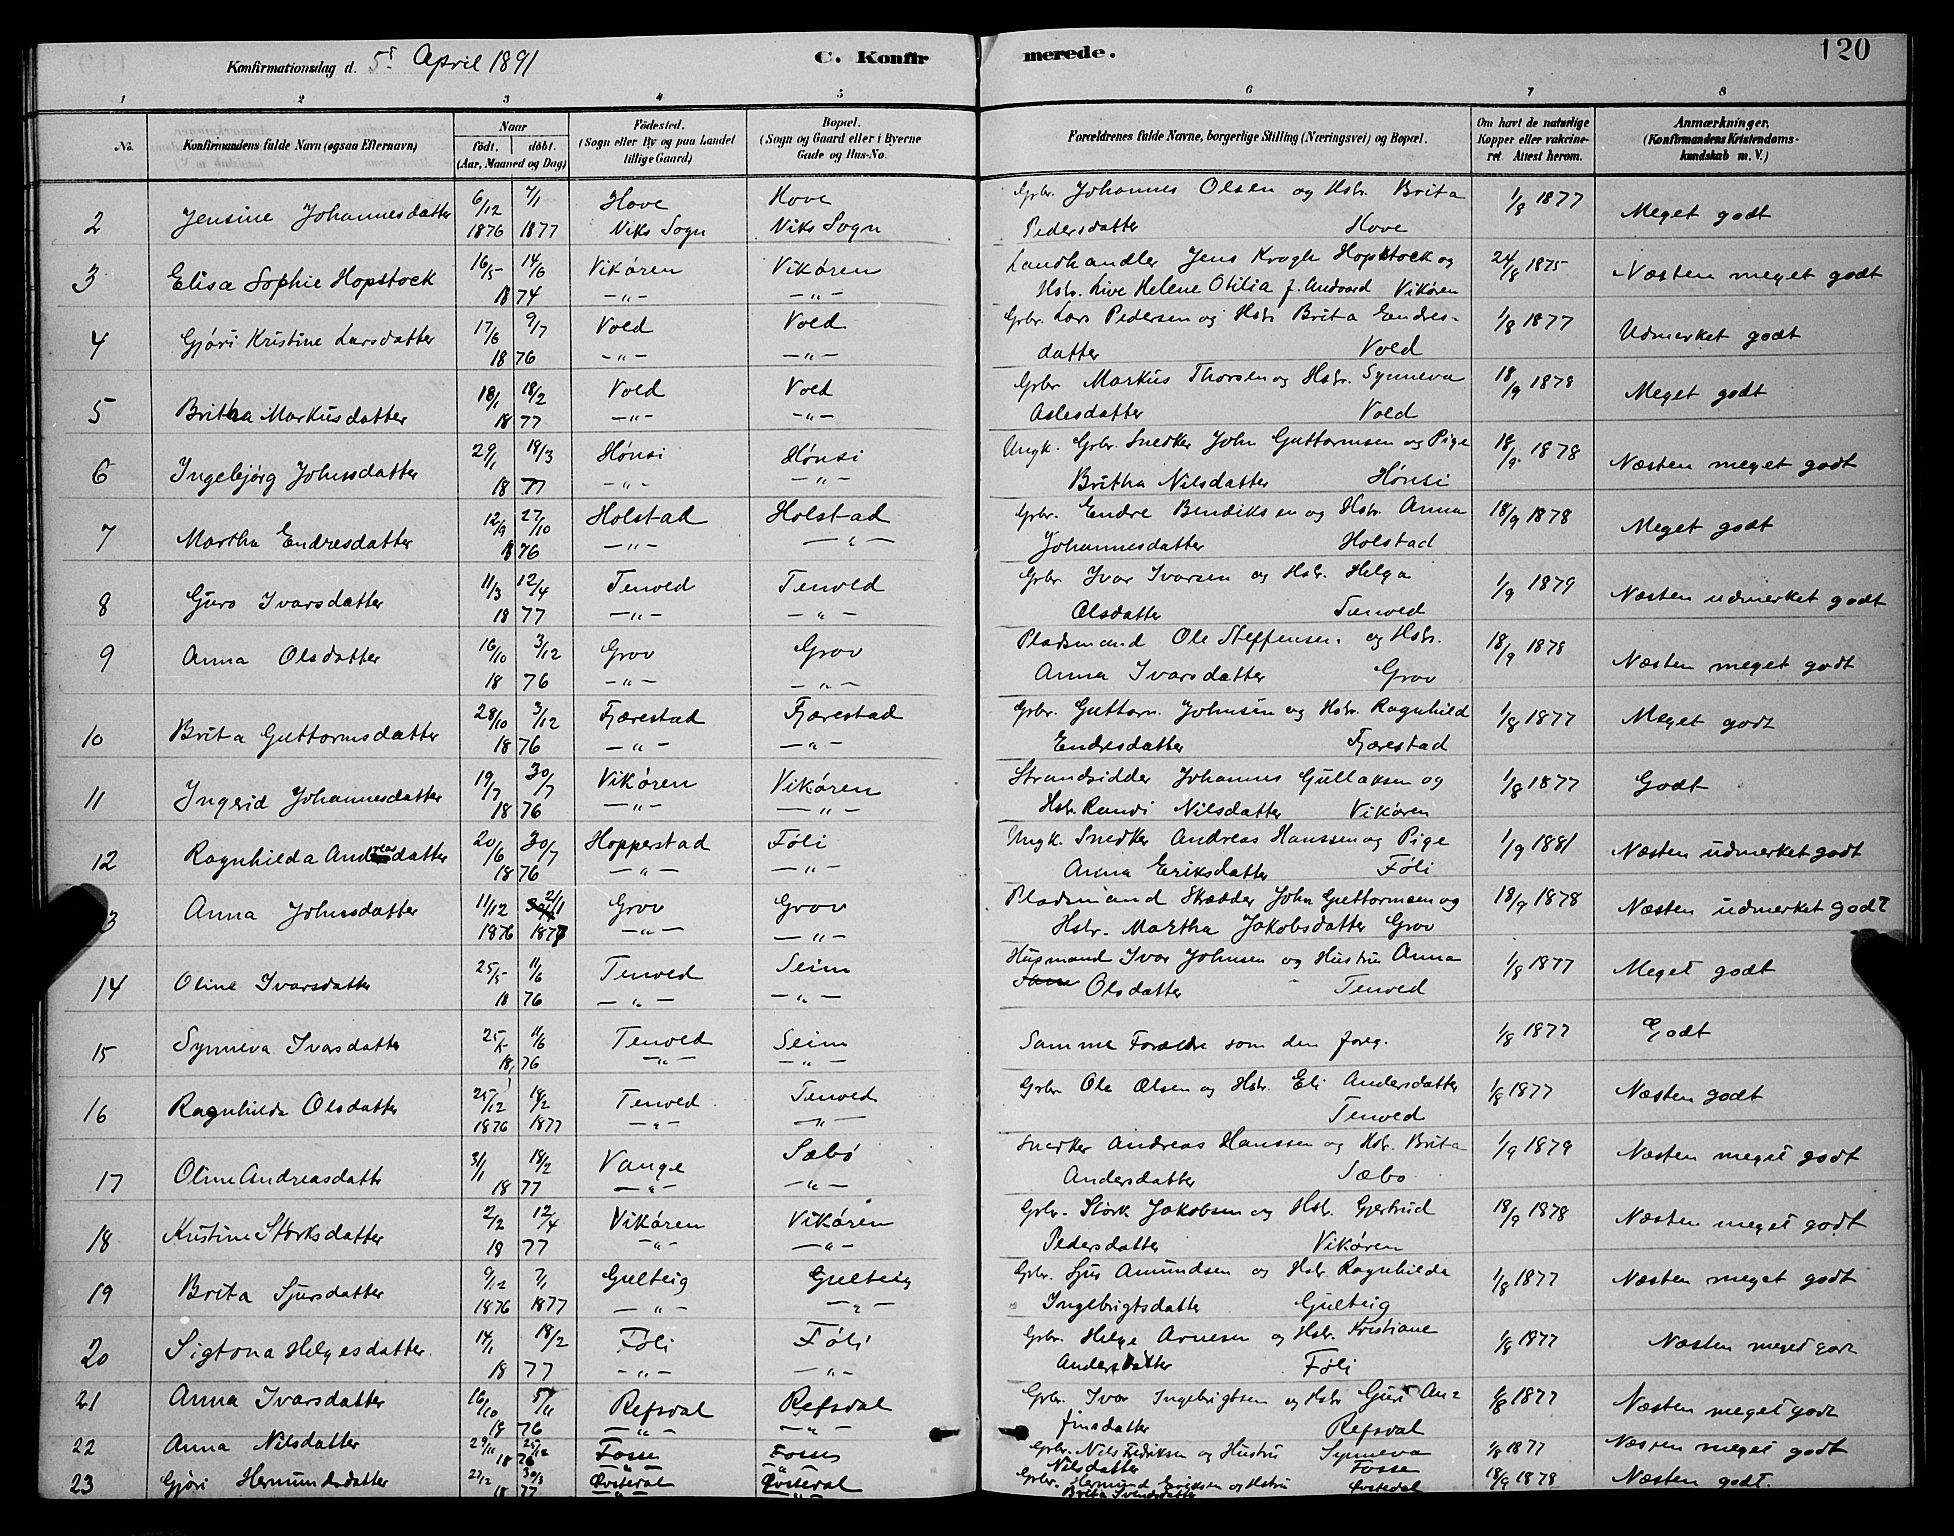 Konfirmationsdag d. 5t April 1891
C. Konfirmerede.
120
1 2 3 4 5 6 7 8
No. Konfirmandens fulde Navn (ogsaa Efternavn) Naar født. døbt. (Aar, Maaned og Dag) Fødested. (Sogn eller By og paa Landet tillige Gaard) Bopæl. (Sogn og Gaard eller i Byerne Gade og Hus-No. Forældrenes fulde Navne, borgerlige Stilling (Næringsvei) og Bopæl. Om havt de naturlige Kopper eller vakcineret Attest herom. Anmærkninger. (Konfirmandens Kristendomskundskab m. V.)
2 Jensine Johannesdatter 6/12 1876 7/1 1877 Hove Viks Sogn Hove Viks Sogn Grbr. Johannes Olsen og Hstr. Brita
Pedersdatter Hove 1/8 1877 Meget godt
3 Elisa Sophie Hopstock 16/5 14/6 1874 Vikøren -"- Vikøren -"- Landhandler Jens Krogh Hopstock og
Hstr. Live Helene Otilia f. Vikøren 24/8 1875 Næsten meget godt
4 Gjøri Kristine Larsdatter 17/6 9/7 1876 Vold -"- Vold -"- Grbr. Lars Pedersen og Hstr Brita Endres-
datter Vold 1/8 1877 Udmerket godt
5 Britha Markusdatter 18/1 18/2 1877 Vold -"- Vold -"- Grbr Markus Thorsen og Hstr. Synneva
Aslesdatter Vold 18/9 1878 Meget godt
6 Ingebjørg Johnsdatter 29/1 18/3 1877 Hønsi -"- Hønsi -"- Ungk. Grbr. Snedker John Guttormsen og Pige
Britha Nilsdatter Hønsi 18/9 1878 Næsten meget godt
7 Martha Endresdatter 12/9 27/10 1876 Holstad -"- Holstad -"- Grbr. Endre Bendiksen og Hstr. Anna
Johannesdatter Holstad 18/9 1878 Meget godt
8 Guro Ivarsdatter 11/3 12/4 1877 Tenvold -"- Tenvold -"- Grbr Ivar Ivarsen og Hstr. Helga
Olsdatter Tenvold 1/9 1879 Næsten udmerket godt
9 Anna Olsdatter 16/10 3/12 1876 Grov -"- Grov -"- Pladsmand Ole Steffensen og Hstr.
Anna Ivarsdatter Grov 18/9 1878 Næsten meget godt
10 Brita Guttormsdatter 28/10 3/12 1876 Fjærestad -"- Fjærestad -"- Grbr. Guttorm Johnsen og Hstr. Ragnhild
Endresdatter Fjærestad 1/8 1877 Meget godt
11 Ingerid Johannesdatter 19/7 30/7 1876 Vikøren -"- Vikøren -"- Strandsidder Johannes Gullaksen og
Hstr. Randi Nilsdatter Vikøren 1/8 1877 Godt
12 Ragnhilda Andreasdatter 20/6 30/7 1876 Hopperstad -"- Føli -"- Ungk. Snedker Andreas Hanssen og Pige
Anna Eriksdatter Føli 1/9 1881 Næsten udmerket godt
3 Anna Johnsdatter 11/12 1876 21/1 1877 Grov -"- Grov -"- Pladsmand Skrædder John Guttormsen og
Hstr. Martha Jakobsdatter Grov 18/9 1878 Næsten udmerket godt
14 Oline Ivarsdatter 25/5 11/6 1876 Tenvold -"- Seim -"- Husmand Ivar Johnsen og Hustru Anna
Olsdatter Tenvold 1/8 1877 Meget godt
15 Synneva Ivarsdatter 25/5 11/6 1876 Tenvold -"- Seim -"- Samme Forældre som den foreg. 1/8 1877 Godt
16 Ragnhilda Olsdatter 25/12 1876 18/2 1877 Tenvold -"- Tenvold -"- Grbr Ole Olsen og Hstr. Eli Andersdatter
Tenvold 1/8 1877 Næsten godt
17 Oline Andreasdatter 31/1 18/2 1877 Vange -"- Sæbø -"- Snedker Andreas Hanssen og Hstr. Brita
Andersdatter Sæbø 1/9 1879 Næsten meget godt
18 Kristine Størksdatter 2/2 12/4 1877 Vikøren -"- Vikøren -"- Grbr. Størk Jakobsen og Hstr. Gjertrud
Pedersdatter Vikøren 18/9 1878 Næsten meget godt
19 Brita Sjursdatter 9/12 1876 7/1 1877 Gulteig -"- Gulteig -"- Grbr. Sjur Amundsen og Hstr. Ragnhilda
Ingebrigtsdatter Gulteig 1/8 1877 Næsten meget godt
20 Sigtona Helgesdatter 14/1 18/2 1877 Føli -"- Føli -"- Grbr. Helge Arnesen og Hstr. Kristiane
Andersdatter Føli 1/8 1877 Næsten meget godt
21 Anna Ivarsdatter 16/10 5/11 1876 Refsdal -"- Refsdal -"- Grbr. Ivar Ingebrigtsen og Hstr Guri An=
finsdatter Refsdal 1/8 1877 Næsten meget godt
22 Anna Nilsdatter 29/11 25/12 1876 Fosse Fosse Grbr. Nils Fredriksen og Hustru Synneva
Nilsdatter Fosse 1/8 1877 Næsten meget godt
23 Gjøri Hermundsdatter 27/12 30/3 1877 Øvstedal Øvstedal Grbr. Hermund Eriksen og Hstru
Brita Ivendsdatter Øvstedal 18/9 1878 Næsten godt.